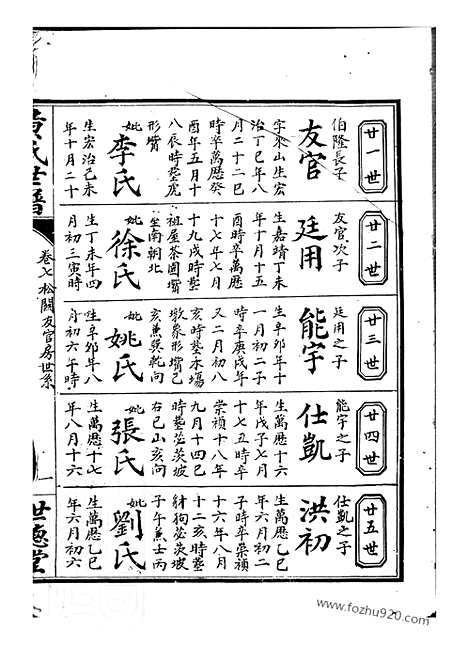 廿一世
伯隆長子
友官
字來山生宏
治丁巳年八
月二十二巳
時卒萬歷癸
酉年五月十
八辰時塟虎
形嘴
妣李氏
生宏治己未
年十月二十
廿二世
友官次子
廷用
生嘉靖丁未
年十月十五
酉時卒萬歷
十七年七月
十九戌時塟
祖屋茶園嘴
坐南朝北
妣徐氏
生丁未年四
月初三寅時
廿三世
廷用之子
能宇
生辛卯年十
一月初二子
時卒庚戌年
又二月初八
亥時塟水塲
墩象形嘴己
亥兼巽乾向
妣姚氏
生辛卯年八
月初六午時
廿四世
能宇之子
仕凱
生萬歷十六
年戊子七月
十七丑時卒
崇禎十八年
九月十四巳
時塟苾茨坡
右巳山亥向
妣張氏
生萬歷十七
年八月十六
廿五世
仕凱之子
洪初
生萬歷乙巳
年六月初二
子時卒崇禎
十六年八月
十二亥時塟
豺狗苾茨坡
子午兼壬丙
妣劉氏
生萬歷乙巳
年六月初六
黃氏世譜
卷七松關友官房世系
一
世德堂
www.fozhu920.com